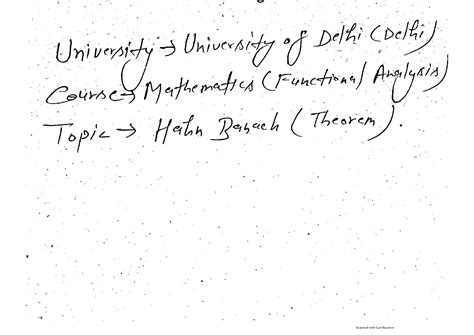 University → University of Delhi (Delhi)
Course → Mathematics (Functional Analysis)
Topic → Hahn Banach (Theorem).
Scanned with CamScanner